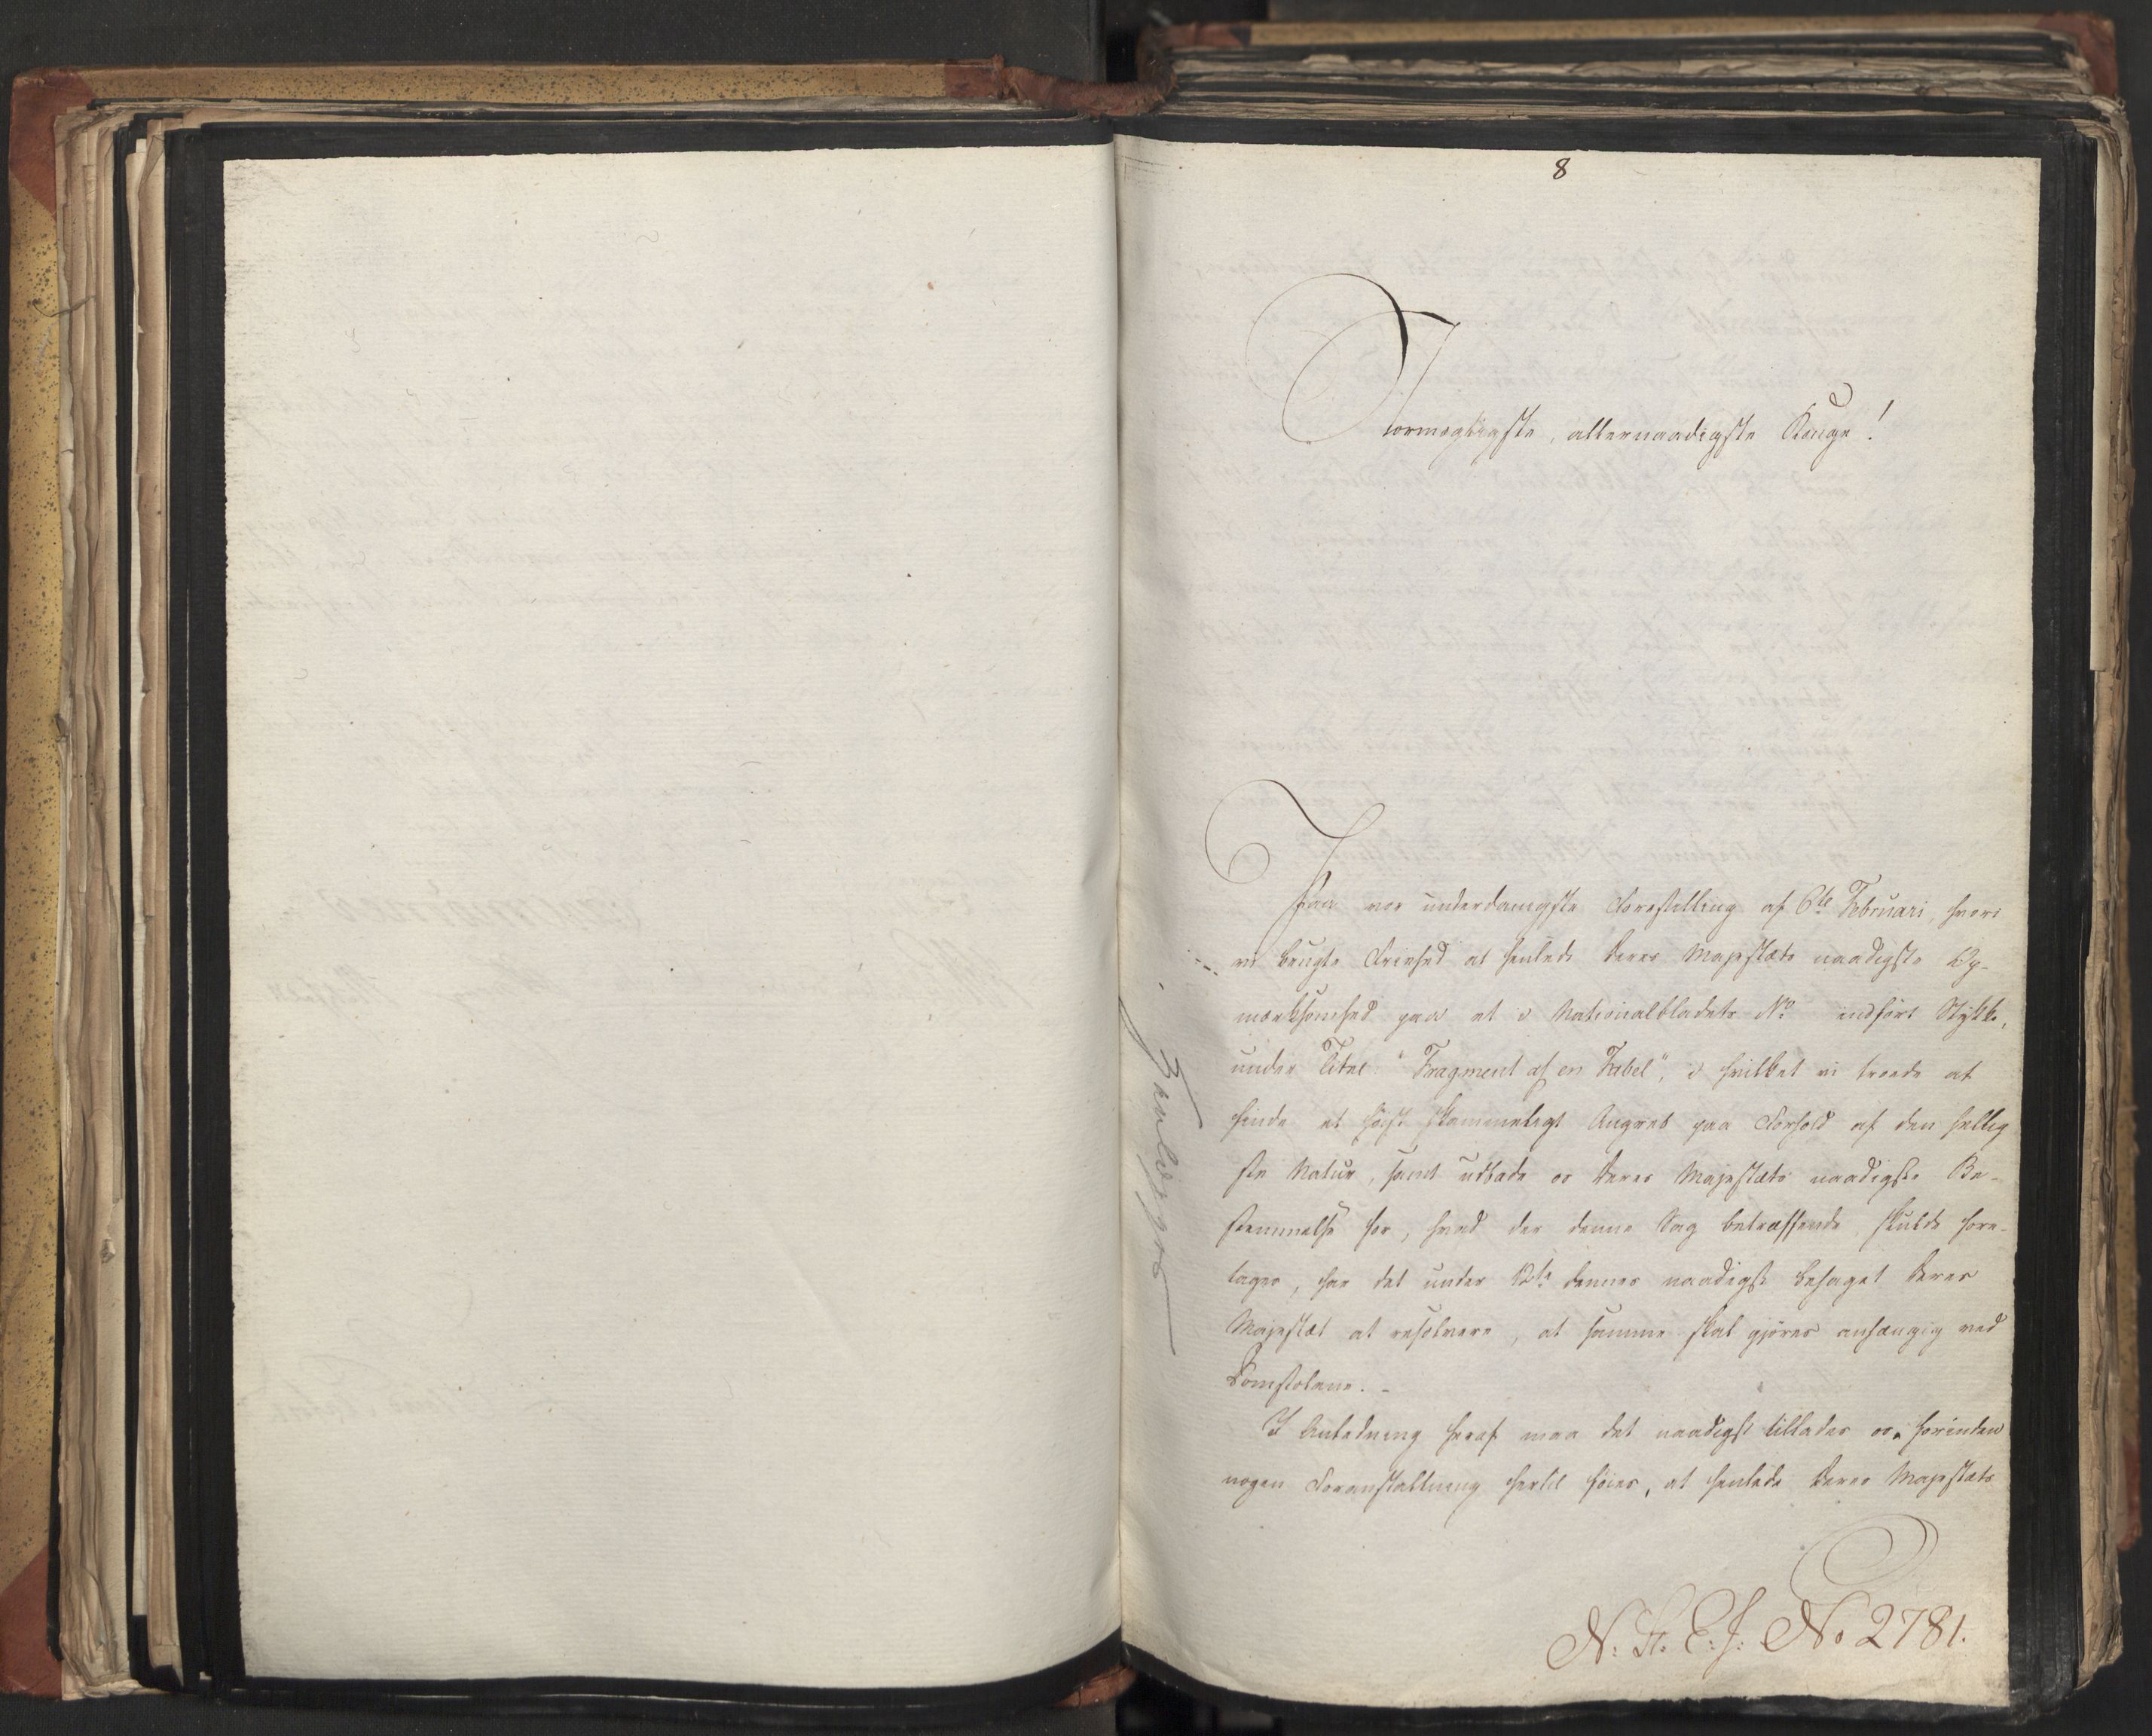 8
Stormægtigste, allernaadigste Konge!
Paa vor underdanigste Forestilling af 6te Februari, hvori
vi brugte Friehed at henlede Deres Majestæts naadigste Op-
mærksomhed paa et i Nationalbladets No indført Stykke,
under Titel: "Fragment af en Fabel", i hvilket vi troede at
finde et høist skammeligt Angreb paa Forhold af den hellig
ste Natur, samt udbade os Deres Majestæts naadigste Be-
stemmelse for, hvad der denne Sag betræffende skulde fore-
tages, har det under 12te dennes naadigst behaget Deres
Majestæt at resolvere, at samme skal gjøres anhængig ved
Domstolene. -
I Anledning heraf maa det naadigst tillades os, forinden
nogen Foranstaltning hertil føies, at henlede Deres Majestæts
N: St. E: J: No 2781.